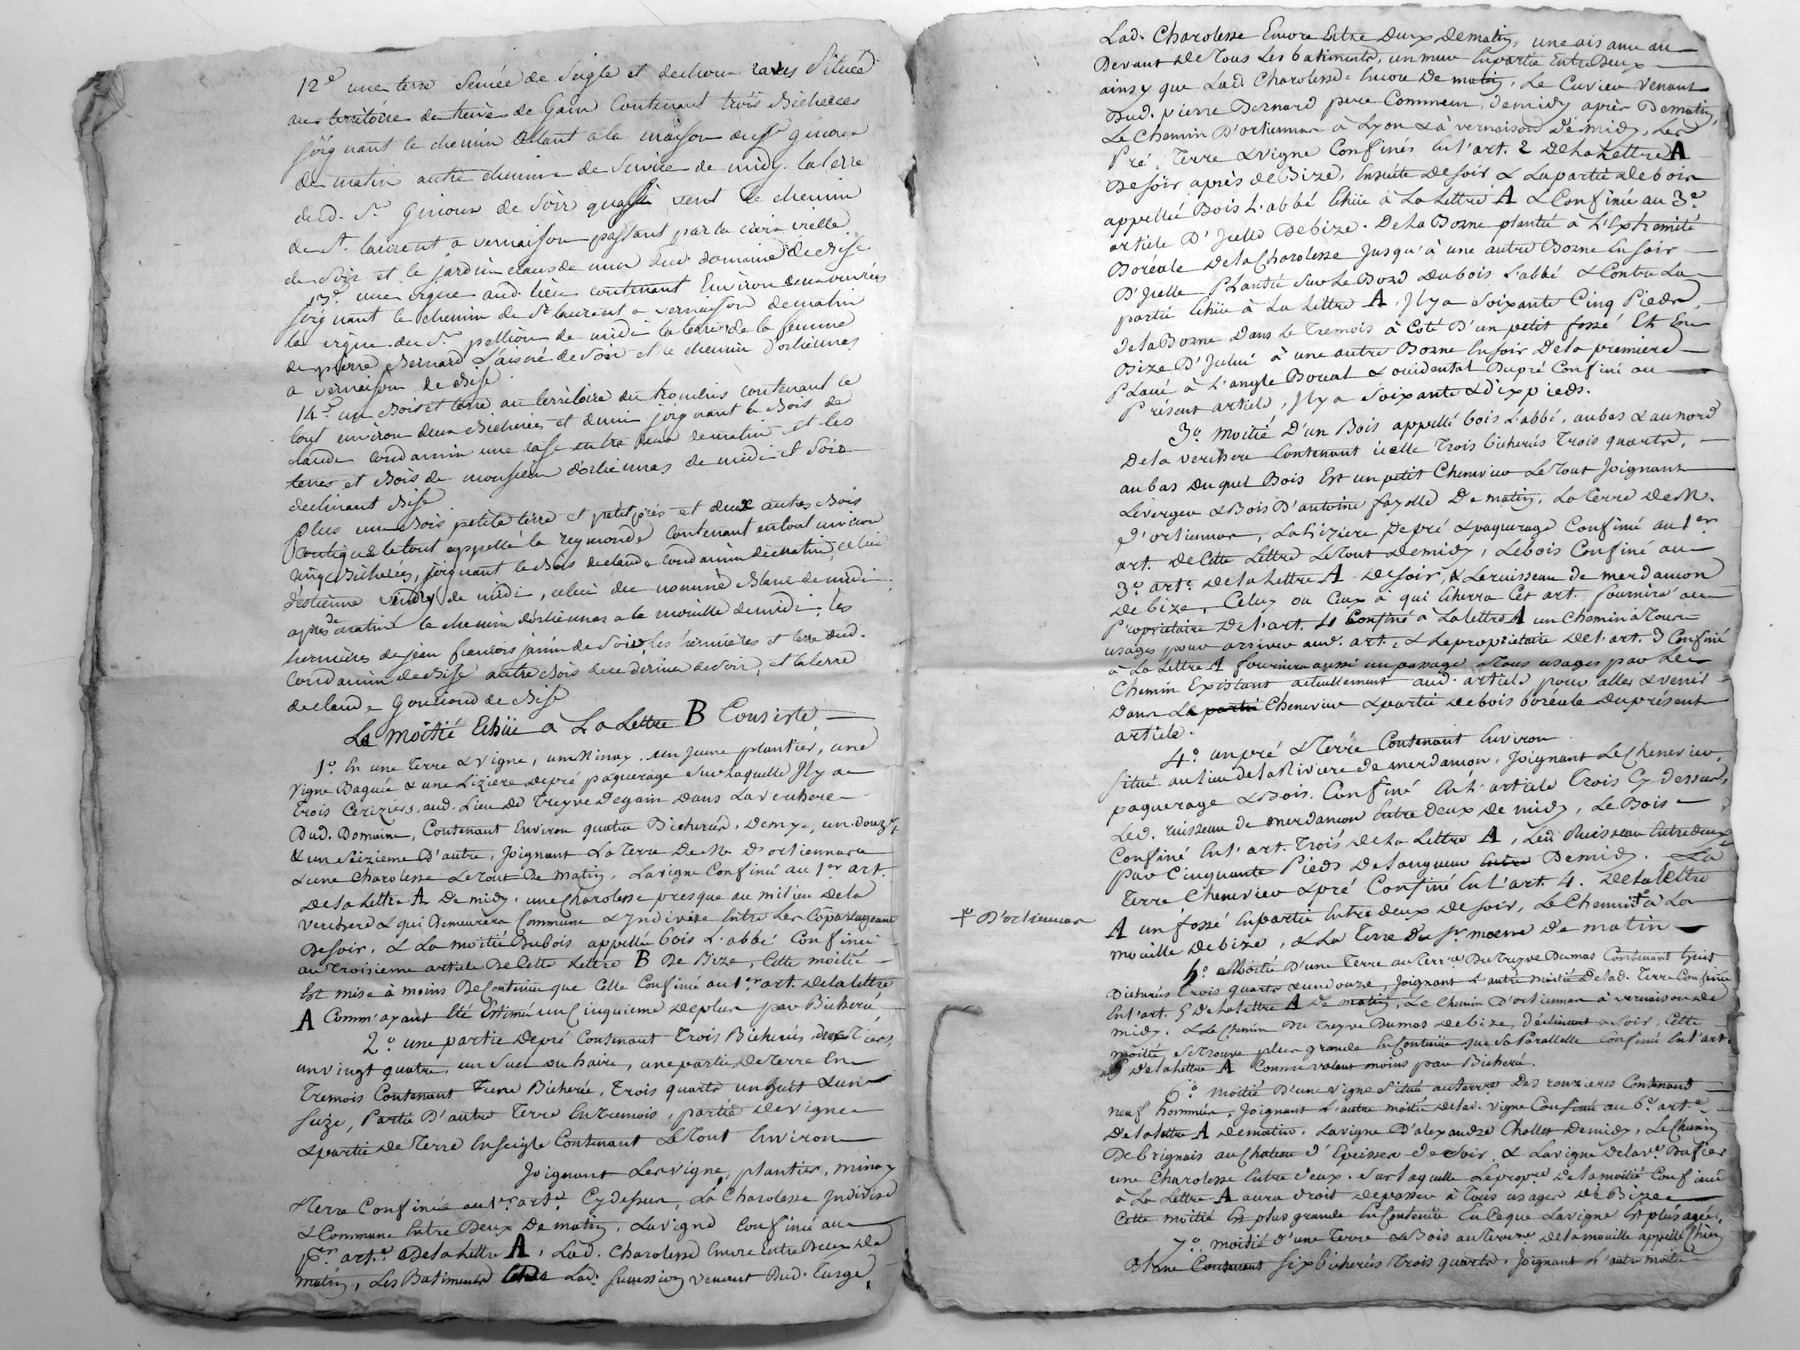 12.e une terre semée de seigle et de choux raves située
au territoire de treive de Gain contenant trois Bicherées
joignant le chemin allant a la maison du sr ginoux
de matin autre chemin de servire de midy la terre
dud. Sr. Ginoux de soir vent le chemin
de St. laurent a vernaison passant par la croix vielle
de soir et le jardin claus de mur dud. domaine de Bise
13.e une vigne aud. lieu contenant Environ deux ouvrées
joignant le chemin de St laurent a vernaison de matin
la vigne du Sr. pellion de midi la terre de la femme
de pierre Bernard L'aisné de Soir et le chemin d'orliennas
a vernaison de Bise
14.e un Bois et terre au territoire du contenant le
tout environ deux Bicherées et demie joignant le Bois de
claude condamin une rase entre deux de matin et les
terres et Bois de monsieur d'orliennas de midi et Soir
declinant Bise
plus un Bois petite terre et petit près et deux autres Bois
contigus le tout appellé la reymonde contenant en tout environ
Bicherées, joignant le Bois de claude condamin de matin, celui
d'estienne de midi, celui du nommé Blanc de midi
après de matin le chemin d'orliennas a la mouille de midi, les
hermières de jean françois janin de Soir, les hermières et terre dud.
condamin de Bise autre Bois de Soir, et la terre
de claude Gourioud de Bise
La Moitié Echüe a La Lettre B Consiste
1.o En une Terre & vigne, un Minay, un jeune plantier, une
vigne Baguée & une Liziere de pré paquerage sur Laquelle Il y a
trois Ceriziers, aud. Lieu De Treyve Degain dans La verchere
Dud. Domaine, Contenant Environ quatre Bicherées, Demy, un douze
& un Seizieme D'autre, Joignant La Terre De Mr. D'orliennas
& une Charolesse Le Tout De Matin, La vigne Confinée au 1.er art.
De la Lettre A De midy, une Charolesse presque au milieu De la
verchere & qui Demeurera Commune & Indivise Entre Les Copartageans
De soir, & La moitié Dubois appellé bois L'abbé Confiné
au Troisieme article De Cette Lettre B De Bize, Cette moitié
Est mise à moins De Contenue que Celle Confinée au 1.er art. De la Lettre
A Comm'ayant Eté Estimée un Cinquieme De plus par Bicherée
2.o une partie De pré Contenant Trois Bicherées deux Tiers,
un vingt quatre, un Suel ou haire, une partie De Terre En
Tremois Contenant D'une Bicherée, Trois quarts un huit & un
Seize, Partie D'autre Terre En Tremois, partie De vigne
& partie De Terre En seigle Contenant Le Tout Environ
Joignant Les vigne, plantier, minay
& Terre Confinés au 1.er art.e Cy dessus, La Charolesse Indivise
& Commune Entre Deux De matin, La vigne Confinée au
1.er art.e De la Lettre A, Lad. Charolesse Encore Entre Deux De
matin, Les Batiments De Lad. Succession venant Dud. Turge,
Lad. Charolesse Encore Entre Deux De matin, une aisance au
Devant De Tous Les batiments, un mur En partie Entre Deux
ainsy que Lad. Charolesse Encore De matin, Le Cuvier Venant
Dud. pierre Bernard pere Commun, De midy après De matin,
Le Chemin D'orliennas à Lyon & à vernaison De midy, Les
Pré, Terre & vigne Confinés En l'art. 2 De La Lettre A
De soir après De Bize, Ensuite De soir & La partie De bois
appellée Bois L'abbé Echüe à La Lettre A & Confinée au 3.e
article D'Icelle De bize. De La Borne plantée à L'Extremité
Boréale De la Charolesse Jusqu'à une autre Borne En soir
D'Icelle Plantée Sur Le Bord Du bois L'abbé & Contre La
partie Echüe à La Lettre A, Il y a Soixante Cinq Pieds,
De la Borne Dans Le Tremois à Coté D'un petit fossé Et En
Bize D'Icelui à une autre Borne En soir De la premiere
Placée à L'angle Boréal & occidental Du pré Confiné au
Présent article, Il y a Soixante & dix pieds.
3.o Moitié D'un Bois appellé bois L'abbé, au bas & au nord
De la verchere Contenant icelle Trois bicherées Trois quarts,
au bas Du quel Bois Est un petit Chenevier Le Tout Joignant
Le verger & Bois D'antoine fayolle De matin, La terre De M.
D'orliennas, La Liziere De pré & paquerage Confiné au 1.er
art. De Cette Lettre Le Tout De midy, Le bois Confiné au
3.e art.e De la Lettre A De soir, & Le ruisseau de merdanson
De bize, Celuy ou Ceux à qui Echerra Cet art. fournira au
Propriétaire De l'art. 4 Confiné à La lettre A un Chemin à Tous
usages pour arriver aud. art. & Le propriétaire De l'art. 3 Confiné
à La Lettre A fournira aussi un passage à Tous usages par Le
Chemin Existant actuellement aud. article pour aller & venir
Dans La partie Chenevier & partie De bois boréale Du présent
article.
4.o un pré & Terre Contenant Environ
situé au lieu de la Riviere de merdanson, Joignant Le Chenevier,
paquerage & Bois Confiné En L'article Trois Cy dessus,
Led. ruisseau de merdanson Entre deux De midy, Le Bois
Confiné En l'art. Trois De la Lettre A, Led. Ruisseau Entre deux
par Cinquante Pieds De longueur Entre De midy. La
Terre Chenevier & pré Confiné En L'art. 4. De la lettre
A un fossé En partie Entre deux De soir, Le Chemin + à La
mouille De bize, & La Terre Du Sr. De matin
+ D'orliennas
5.o Moitié D'une Terre au Terre Du Treyve Dumas Contenant huit
Bicherées trois quarts & un douze, Joignant L'autre moitié De lad. Terre Confinée
En l'art. 5 De la lettre A De matin, Le Chemin D'orliennas à vernaison De
midy, & Le Chemin Du Treyve Dumas De bize, déclinant De soir, Cette
moitié, se trouve plus grande En Contenüe que Sa Parallelle Confinée En l'art.
5 De la Lettre A Comme valant moins par Bicherée.
6.o Moitié D'une vigne Située au terre Des ronzieres Contenant
neuf hommées, Joignant L'autre moitié De lad. vigne Confinée au 6.e art.e
De la lettre A De matin, La vigne D'alexandre Chollet De midy, Le Chemin
De brignais au Chateau d'Epeisses De soir & La vigne De la ve. Dufier
une Charolesse Entre deux, Sur laquelle Le propre. De la moitié Confinée
à La Lettre A aura droit De passer à Tous usages De Bize
Cette moitié Est plus grande En Contenüe En Ce que La vigne Est plus agée.
7.o Moitié d'une Terre & Bois au Terre De la mouille appellé Chier
Blanc Contenant Six bicherées trois quarts, Joignant L'autre moitié